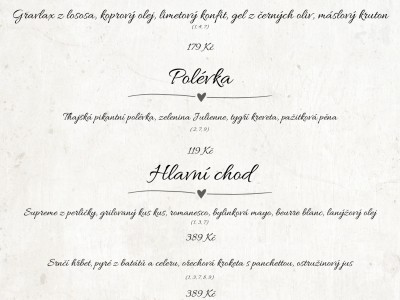 Gravlax z lososa, koprový olej, limetový konfit, gel z černých oliv, máslový kruton
(1.4.7)
179 Kč
Polévka
Thajská pikantní polévka, zelenina Julienne, tygří kreveta, pažitková pěna
(2.7.9)
119 Kč
Hlavní chod
Supreme z perličky, grilovaný kus kus, romanesco, bylinková mayo, beurre blanc, lanýžový olej
(1.3.7)
389 Kč
Srnčí hřbet, pyré z batátů a celeru, ořechová kroketa s panchettou, ostružinový jus
(1.3.7.8.9)
389 Kč